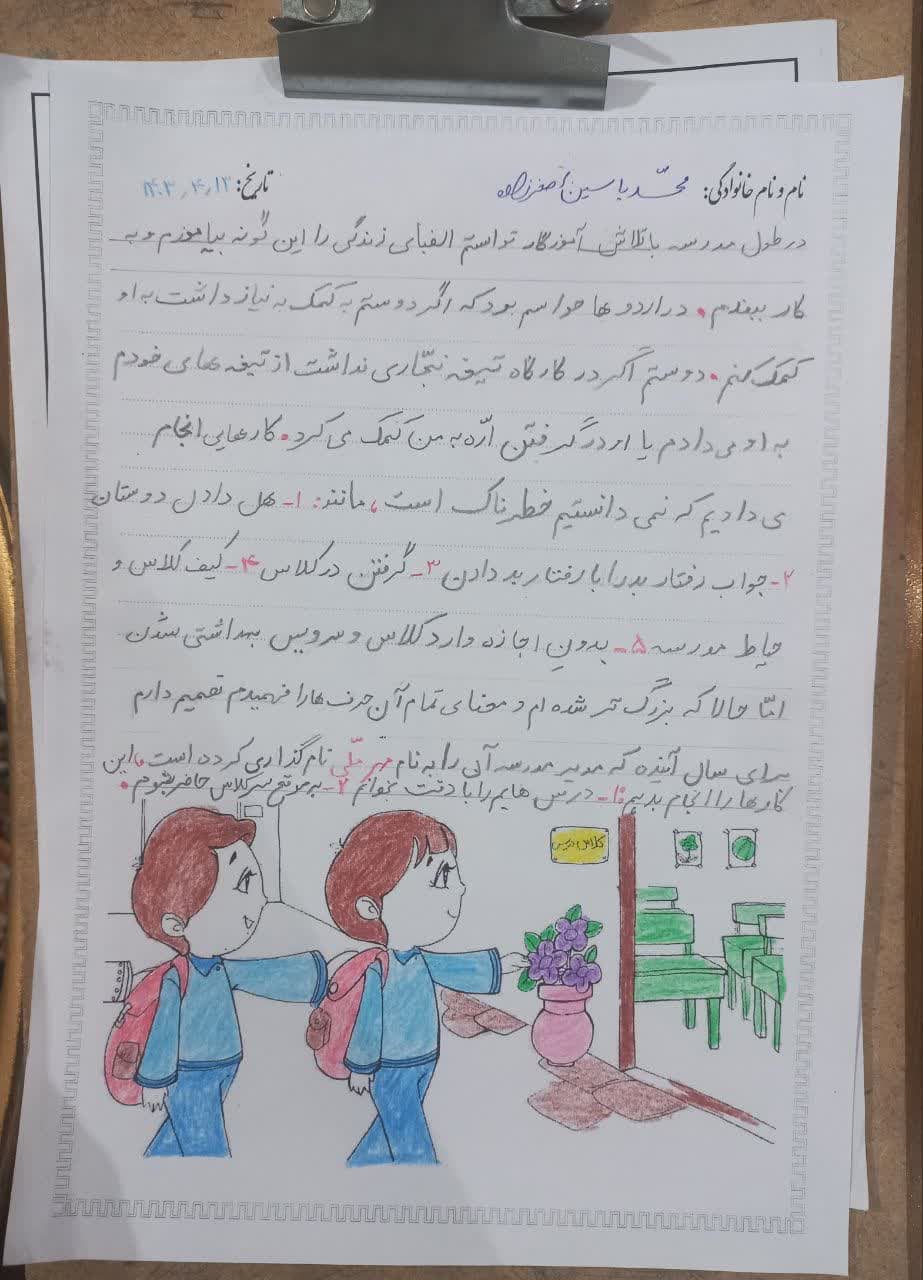 نام و نام خانوادگی: محمّد یاسین اصغرزاده
تاریخ: ۱۴۰۳٫۴٫۱۲
در طول مدرسه با تلاش آموزگار توانستم الفبای زندگی را این گونه بیاموزم و به
کار ببندم. در اردو ها حواسم بود که اگر دوستم به کمک به نیاز داشت به او
کمک کنم. دوستم اگر در کارگاه تیغه نجّاری نداشت از تیغه های خودم
به او می دادم یا او در گرفتن ارّه به من کمک می کرد. کارهایی انجام
می دادیم که نمی دانستیم خطرناک است، مانند: ۱- هل دادن دوستان
۲- جواب رفتار بد را با رفتار بد دادن ۳- گرفتن در کلاس ۴- کثیف کلاس و
حیاط مدرسه ۵- بدونِ اجازه وارد کلاس و سرویس بهداشتی شدن
امّا حالا که بزرگ تر شده ام و معنای تمام آن حرف ها را فهمیدم تصمیم دارم
برای سال آینده که مدیر مدرسه آن را به نام مهر ملّی نام گذاری کرده است، این
کارها را انجام بدهم: ۱- درس هایم را با دقت بخوانم ۲- به موقع سر کلاس حاضر بشوم.
کلاس درس